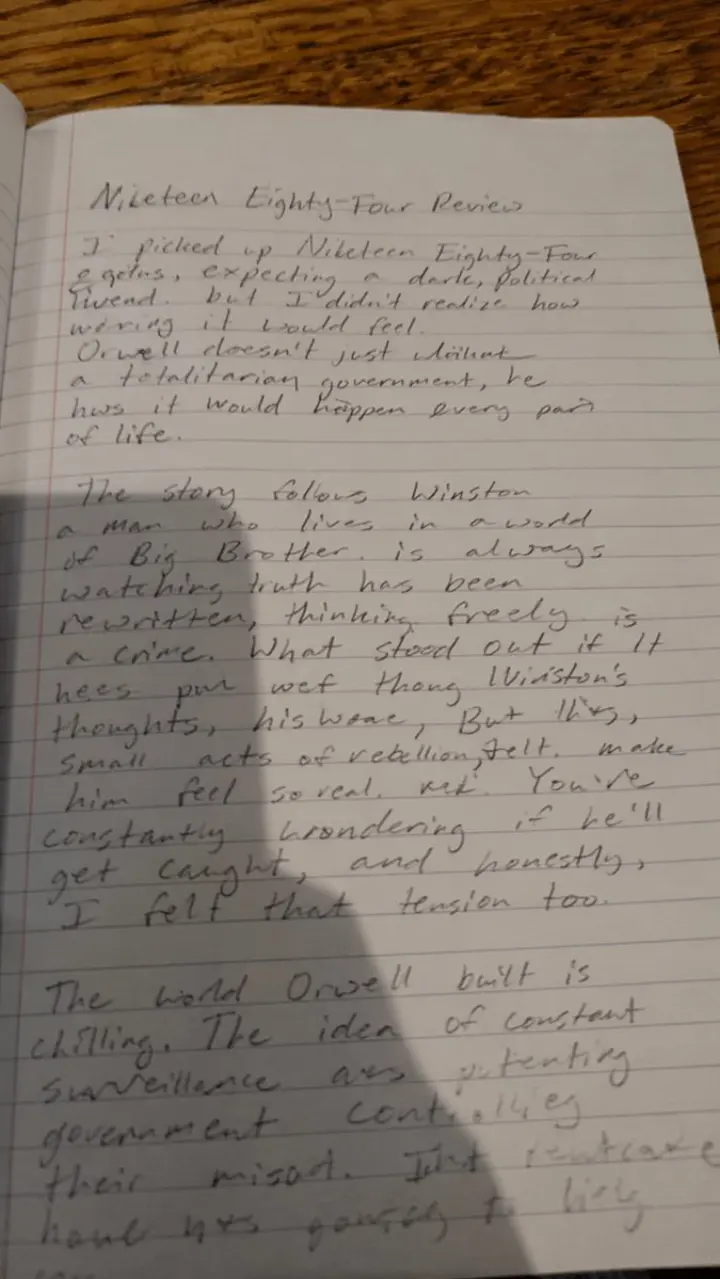 Nileteen Eighty-Four Review
I picked up Nileteen Eighty-Four
expecting a dark, political
but I didn't realize how
it would feel.
Orwell doesn't just
a totalitarian government, he
hws it would happen every part
of life.
The story follows Winston
a man who lives in a world
of Big Brother. is always
watching truth has been
rewritten, thinking freely is
a crime. What stood out if It
hees wef thong Winston's
thoughts, his But
small acts of rebellion, felt. make
him feel so real. You're
constantly wondering if he'll
get caught, and honestly,
I felt that tension too.
The world Orwell built is
chilling. The idea of constant
surveillance
government
their misod.